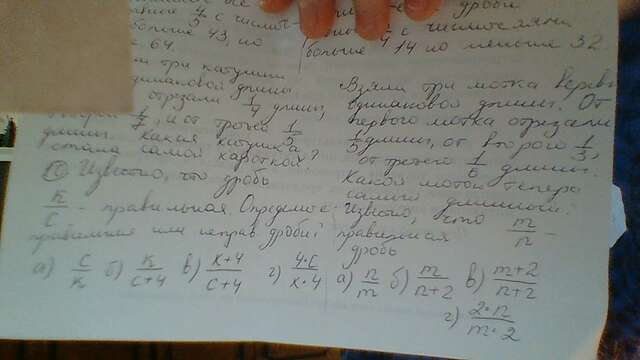 4/5 с числит-
больше 43, но
64.
три катушки
одинаковой длины
отрезали 1/4 длины,
1/7, и от третьей 1/5
длины. Какая катушка
стала самой короткой?
10) Известно, что дробь
к/с - правильная. Определите
правильные или неправ. дроби:
а) с/к б) к/с+4 в) к+4/с+4 г) 4·с/к·4
дроби
с числителями
больше 14 но меньше 32.
Взяли три мотка верев
одинаковой длины. От
первого мотка отрезали
1/5 длины, от второго 1/3,
от третьего 1/6 длины.
Какой моток теперь
самый длинный?
Известно, что m/n -
правильная
дробь
а) n/m б) m/n+2 в) m+2/n+2
г) 2·n/m·2